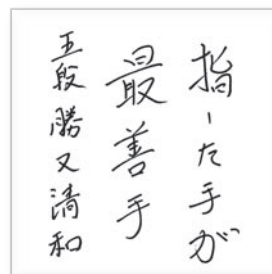 指した手が
最善手
五段 勝又清和